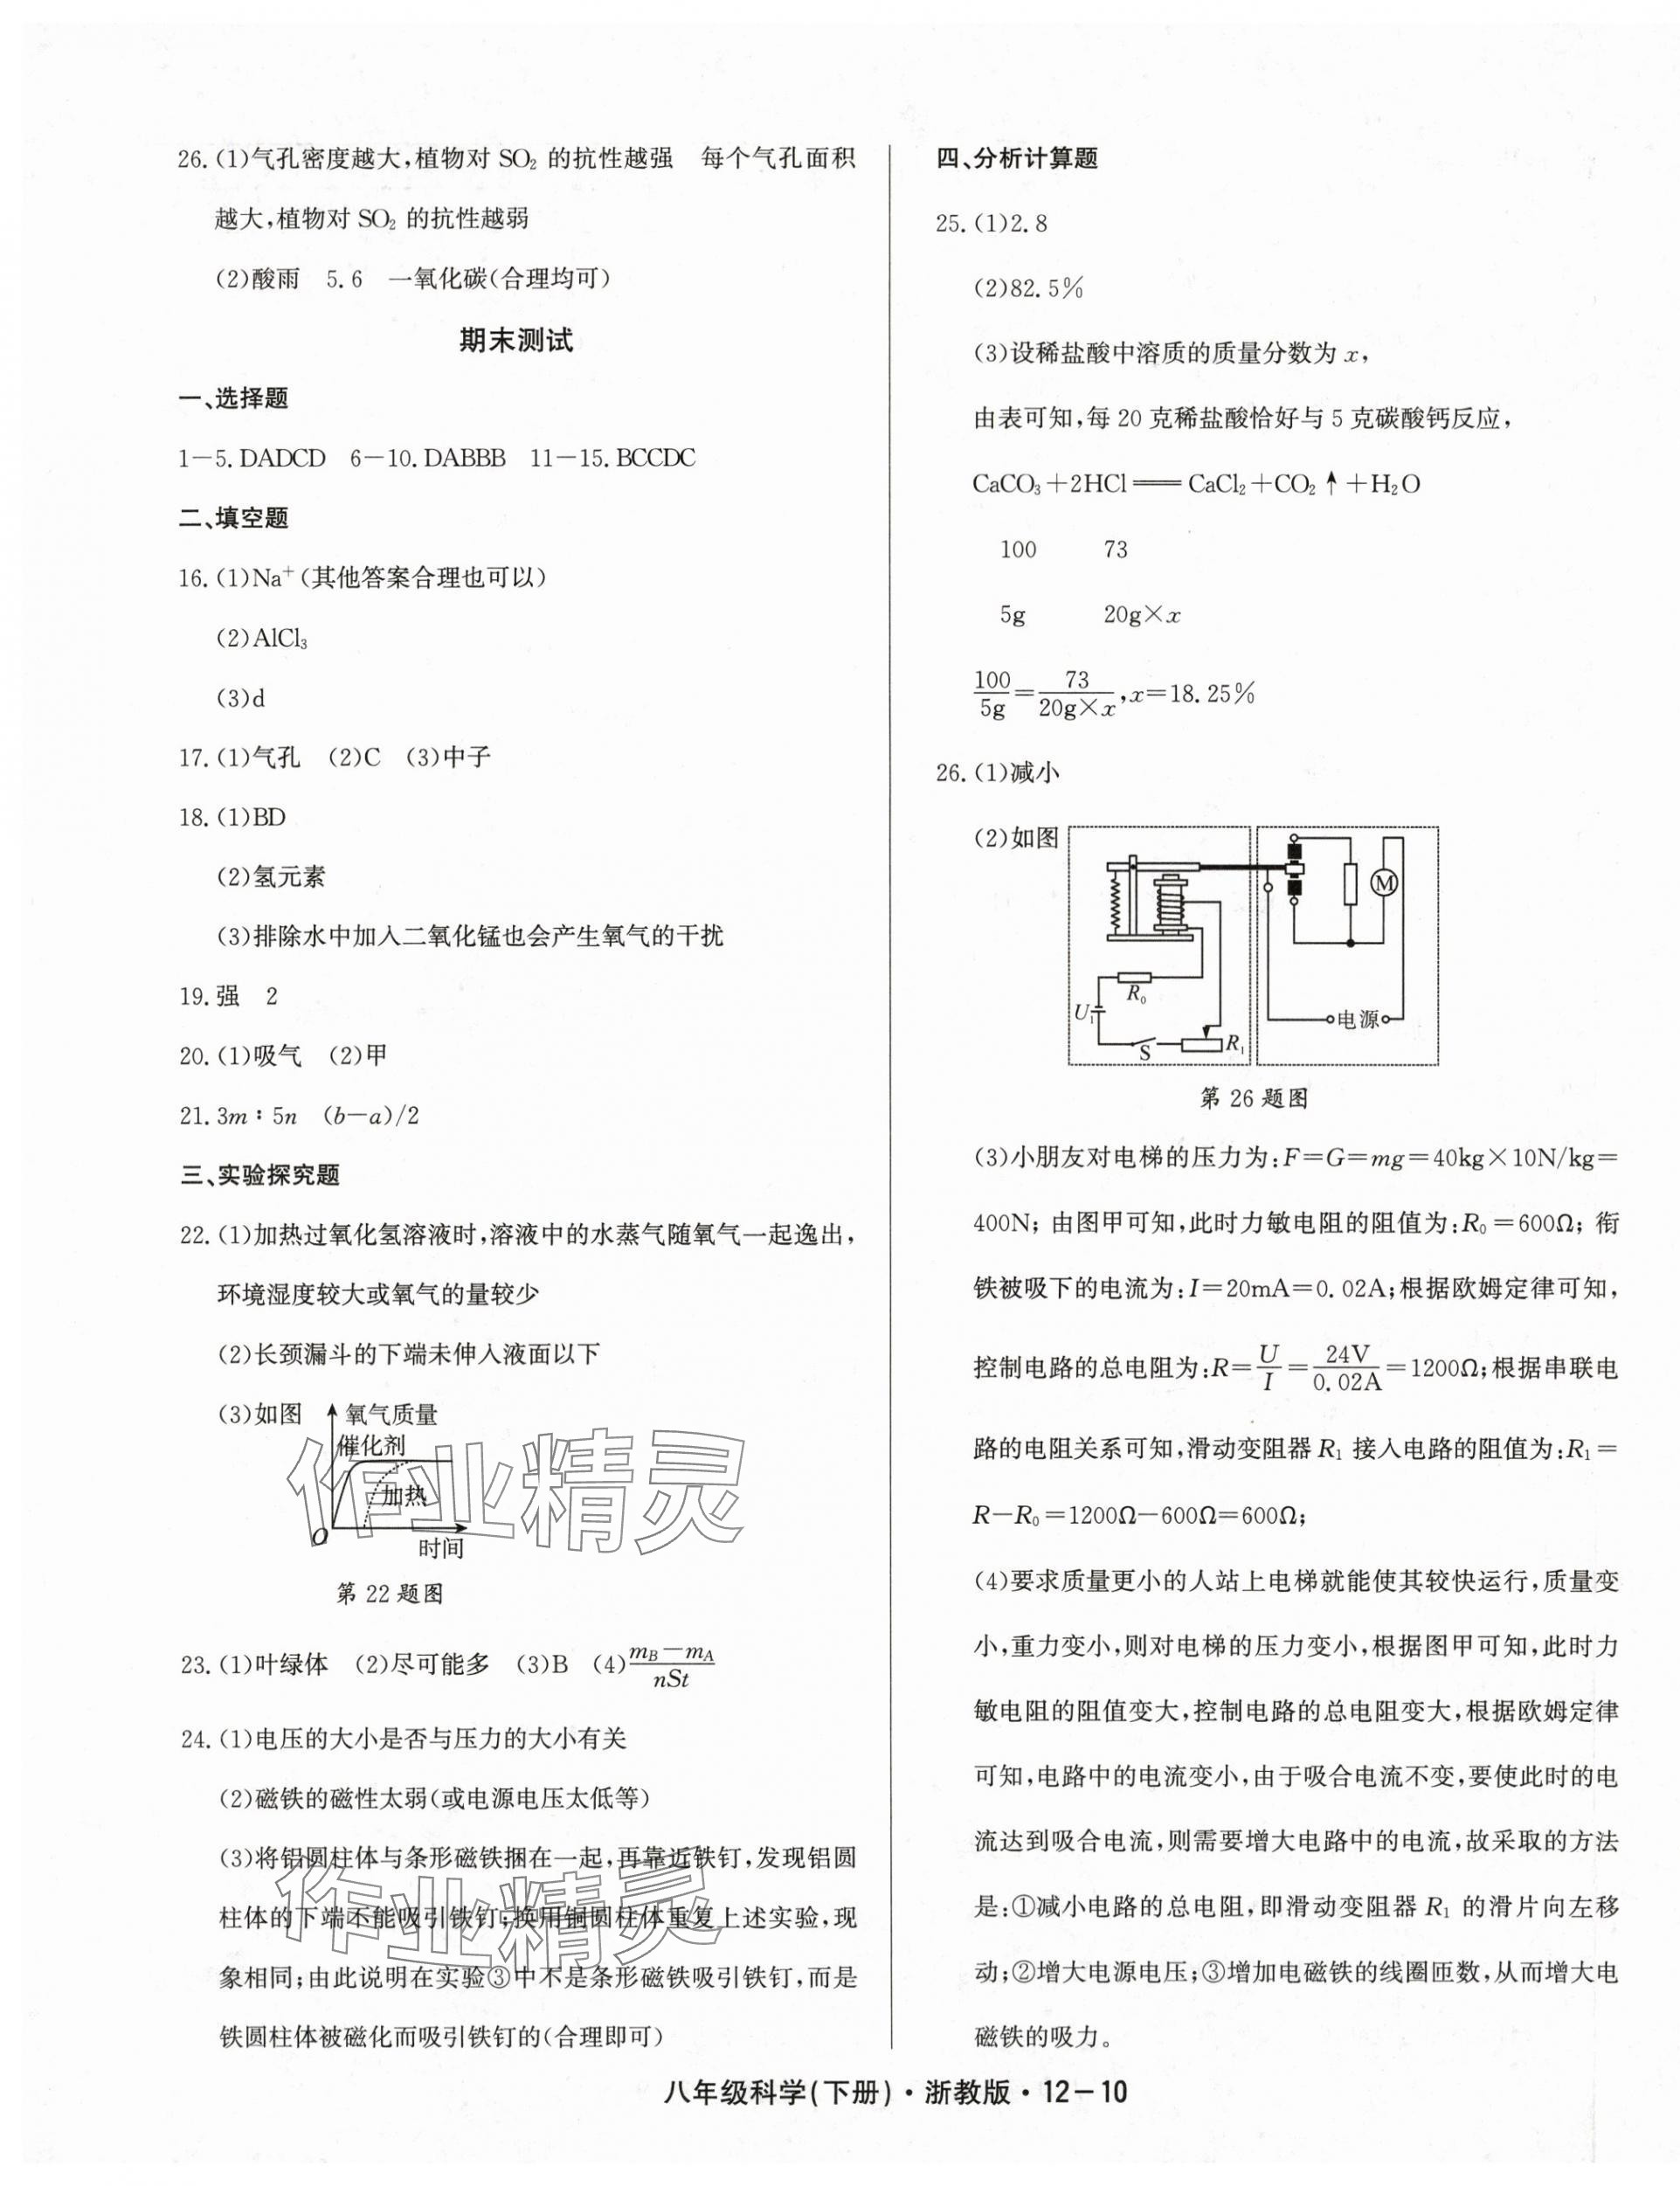 26.(1)气孔密度越大,植物对 SO₂ 的抗性越强　每个气孔面积
越大,植物对 SO₂ 的抗性越弱
(2)酸雨　5.6　一氧化碳(合理均可)
期末测试
一、选择题
1—5.DADCD　6—10.DABBB　11—15.BCCDC
二、填空题
16.(1)Na⁺(其他答案合理也可以)
(2)AlCl₃
(3)d
17.(1)气孔　(2)C　(3)中子
18.(1)BD
(2)氢元素
(3)排除水中加入二氧化锰也会产生氧气的干扰
19.强　2
20.(1)吸气　(2)甲
21.3m∶5n　(b—a)/2
三、实验探究题
22.(1)加热过氧化氢溶液时,溶液中的水蒸气随氧气一起逸出,
环境湿度较大或氧气的量较少
(2)长颈漏斗的下端未伸入液面以下
(3)如图
氧气质量
催化剂
加热
O
时间
第 22 题图
23.(1)叶绿体　(2)尽可能多　(3)B　(4)(m_B—m_A)/(nSt)
24.(1)电压的大小是否与压力的大小有关
(2)磁铁的磁性太弱(或电源电压太低等)
(3)将铝圆柱体与条形磁铁捆在一起,再靠近铁钉,发现铝圆
柱体的下端不能吸引铁钉;换用铜圆柱体重复上述实验,现
象相同;由此说明在实验③中不是条形磁铁吸引铁钉,而是
铁圆柱体被磁化而吸引铁钉的(合理即可)
作业精灵
作业精灵
四、分析计算题
25.(1)2.8
(2)82.5%
(3)设稀盐酸中溶质的质量分数为 x,
由表可知,每 20 克稀盐酸恰好与 5 克碳酸钙反应,
CaCO₃+2HCl══CaCl₂+CO₂↑+H₂O
100　73
5g　20g×x
100/5g=73/(20g×x),x=18.25%
26.(1)减小
(2)如图
M
R₀
U₁
S
R₁
电源
第 26 题图
(3)小朋友对电梯的压力为:F=G=mg=40kg×10N/kg=
400N; 由图甲可知,此时力敏电阻的阻值为:R₀=600Ω; 衔
铁被吸下的电流为:I=20mA=0.02A;根据欧姆定律可知,
控制电路的总电阻为:R=U/I=24V/0.02A=1200Ω;根据串联电
路的电阻关系可知,滑动变阻器 R₁ 接入电路的阻值为:R₁=
R—R₀=1200Ω—600Ω=600Ω;
(4)要求质量更小的人站上电梯就能使其较快运行,质量变
小,重力变小,则对电梯的压力变小,根据图甲可知,此时力
敏电阻的阻值变大,控制电路的总电阻变大,根据欧姆定律
可知,电路中的电流变小,由于吸合电流不变,要使此时的电
流达到吸合电流,则需要增大电路中的电流,故采取的方法
是:①减小电路的总电阻,即滑动变阻器 R₁ 的滑片向左移
动;②增大电源电压;③增加电磁铁的线圈匝数,从而增大电
磁铁的吸力。
八年级科学(下册)·浙教版·12—10